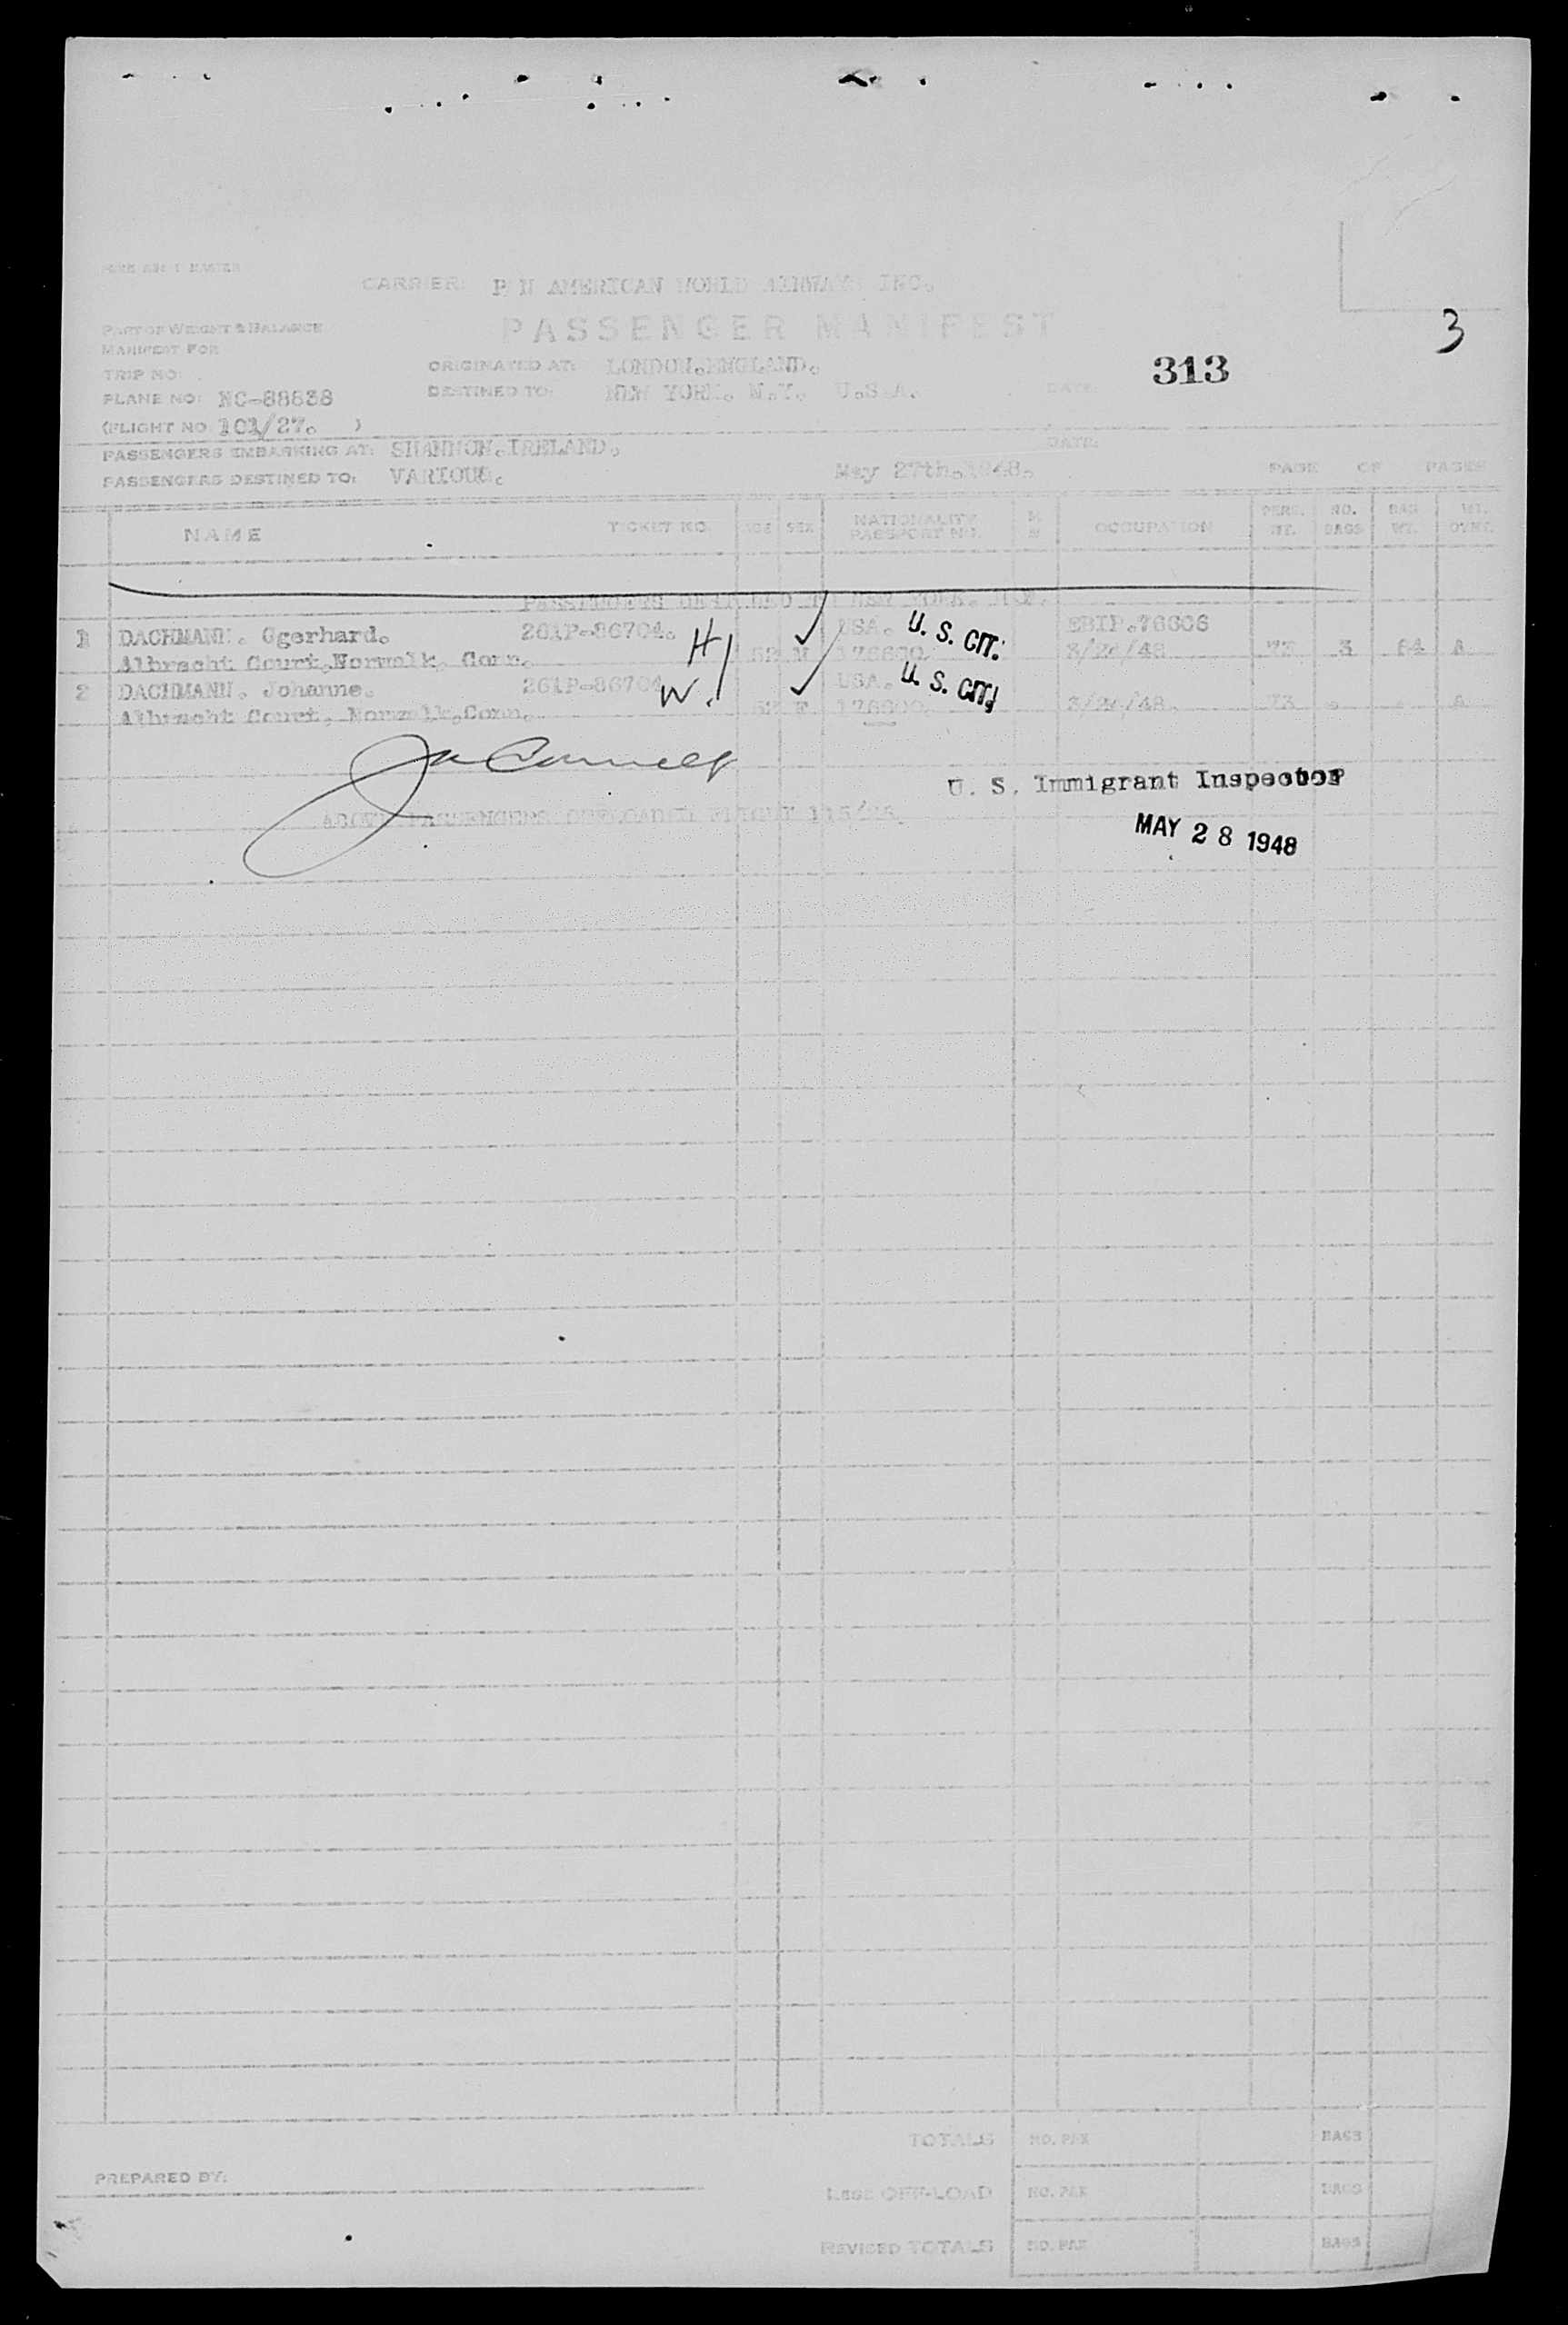 CARRIER: P N AMERICAN WORLD AIRWAYS INC.
3
PASSENGER MANIFEST
PART OF WEIGHT & BALANCE
MANIFEST FOR
313
ORIGINATED AT: LONDON.ENGLAND.
TRIP NO:
DESTINED TO: NEW YORK. N.Y. U.S.A. DATE:
PLANE NO: NC-88838
(FLIGHT NO 101/27. )
PASSENGERS EMBARKING AT: SHANNON.IRELAND. DATE:
PASSENGERS DESTINED TO: VARIOUS. May 27th.1948. PAGE OF PAGES
NAME TICKET NO. AGE SEX NATIONALITY PASSPORT NO. OCCUPATION PERS. WT. NO. BAGS BAG WT.
PASSENGERS NEW YORK.
1 DACHMANN. Ggerhard. 261P-86704. H USA. U. S. CIT.
Albracht Court,Norwalk. Conn. M 3/24/48 3 64 A
2 DACHMANN. Johanne. 261P-86704 W. USA. U. S. CIT.
Albracht Court, Norwalk.Conn. F 3/24/48. 73 A
U. S. Immigrant Inspector
ABOVE PASSENGERS FLIGHT
MAY 28 1948
TOTALS NO. PAX BAGS
PREPARED BY:
LESS OFF-LOAD NO. PAX BAGS
REVISED TOTALS NO. PAX BAGS